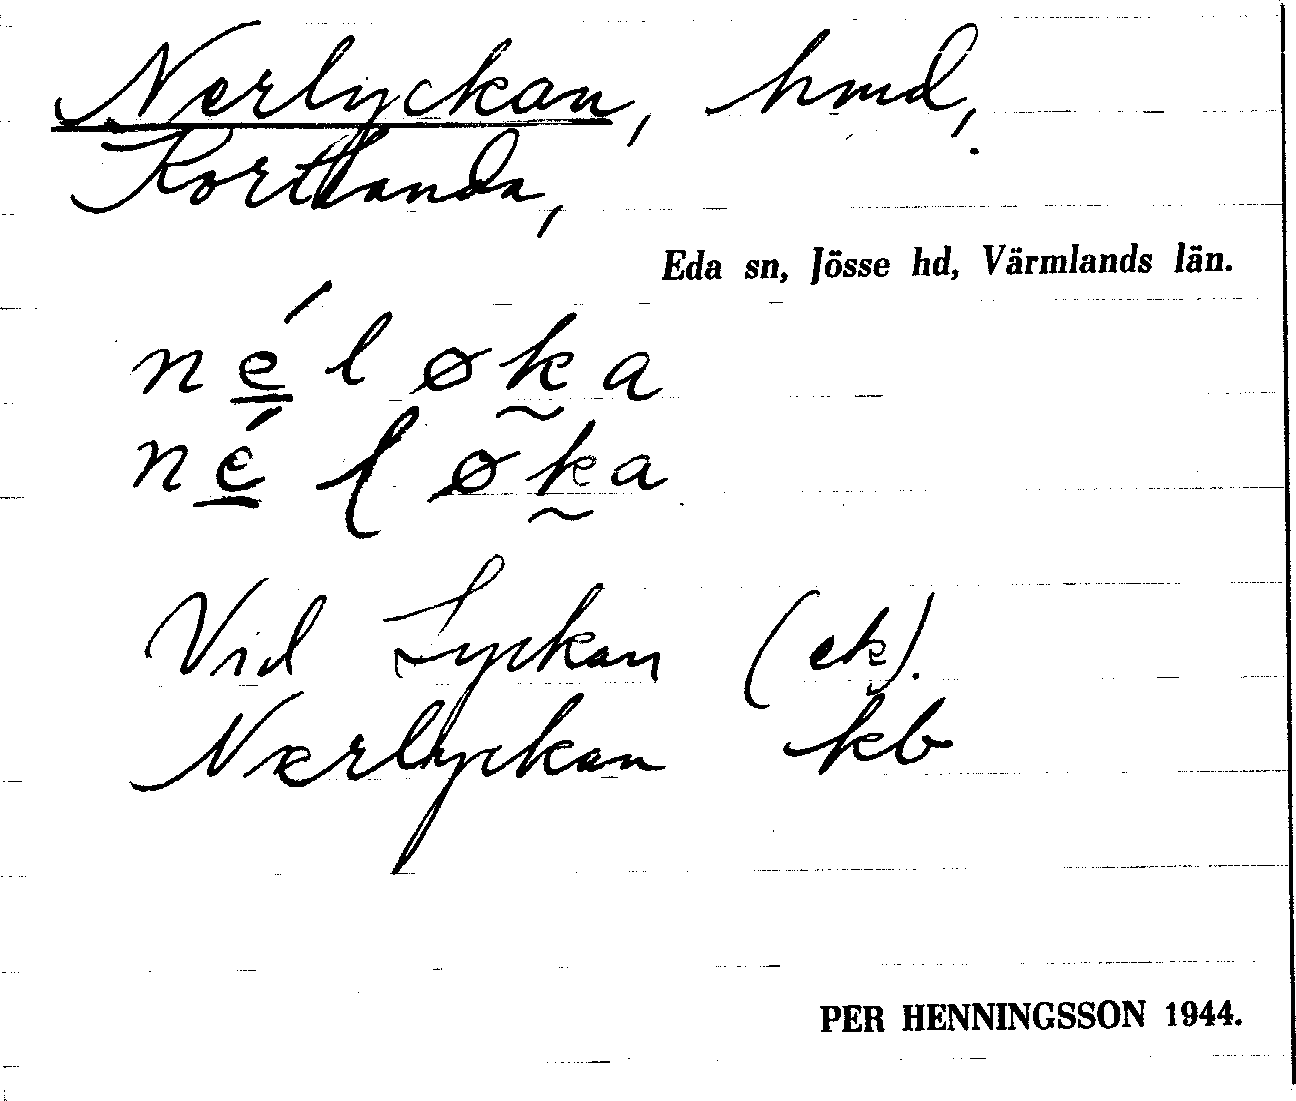 Nerlyckan, hmd,
Kortlanda,
Eda sn, Jösse hd, Värmlands län.
né̲l øk̰a
né̲ɭ øk̰a
Vid Lyckan (ek).
Nerlyckan kb
PER HENNINGSSON 1944.